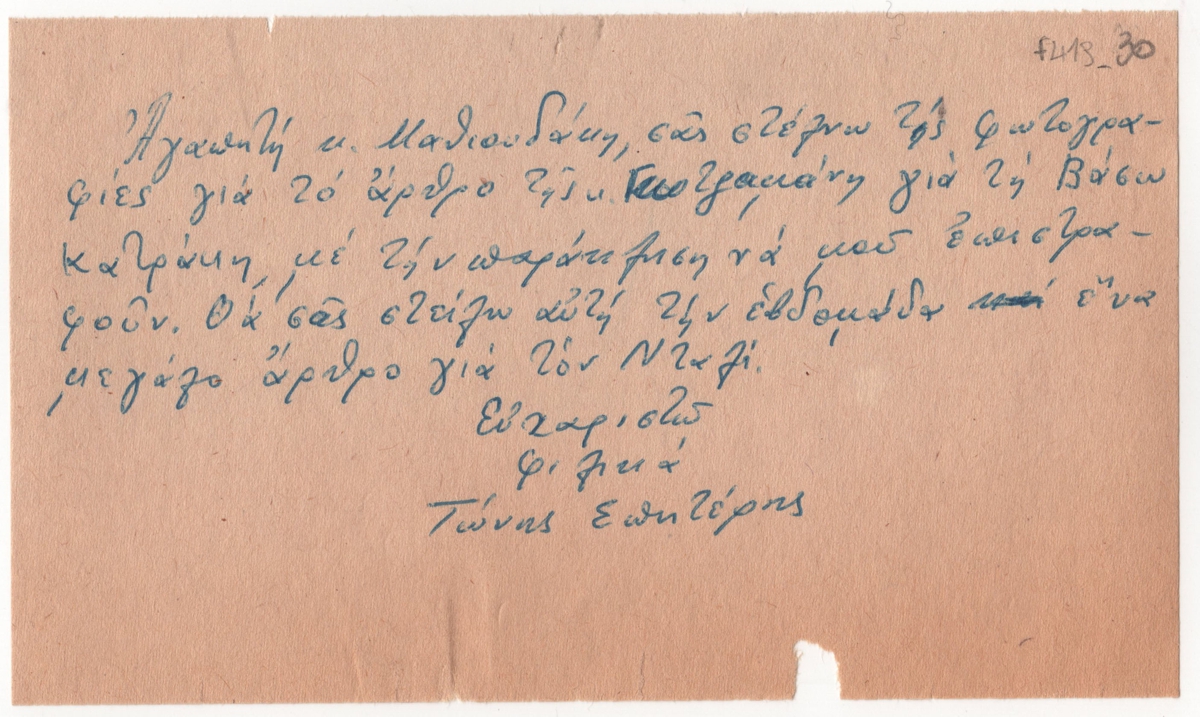 f413_30
Ἀγαπητή κ. Μαθιουδάκη, σᾶς στέλνω τίς φωτογρα-
φίες γιά τό ἄρθρο τῆς κ. γιά τή Βάσω
Κατράκη, μέ τήν παράκληση νά μοῦ ἐπιστρα-
φοῦν. Θά σᾶς στείλω αὐτή τήν ἑβδομάδα ἕνα
μεγάλο ἄρθρο γιά τόν Νταλί.
Εὐχαριστῶ
Φιλικά
Τώνης Σπητέρης